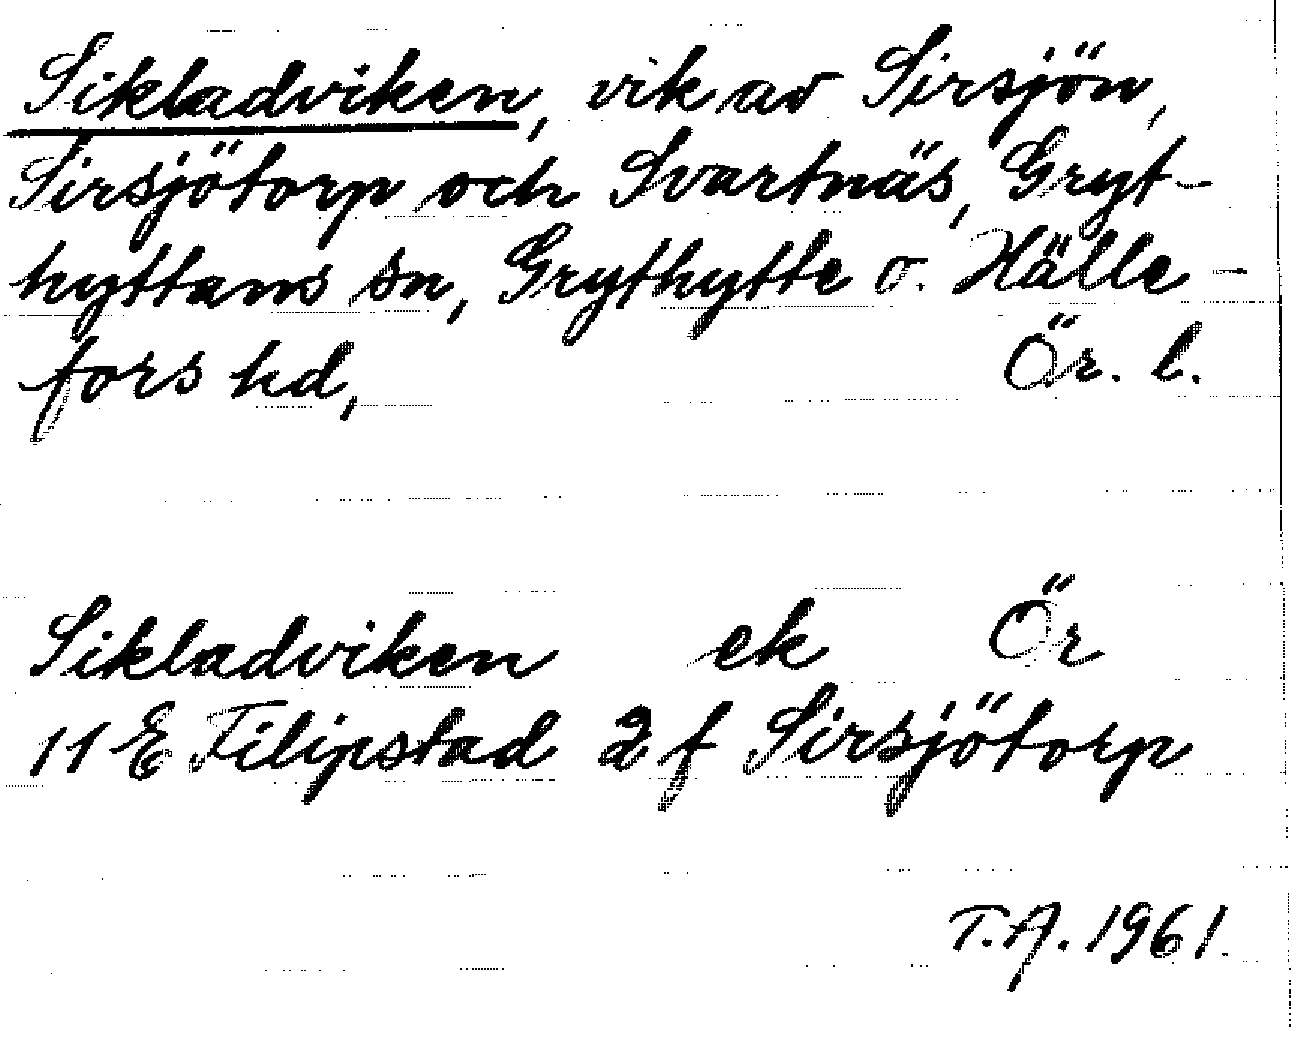 Sikladviken, vik av Sirsjön,
Sirsjötorp och Svartnäs, Gryt-
hyttans sn, Grythytte o. Hälle-
fors hd, Ör. l.
Sikladviken ek Ör
11 E Filipstad 2 f Sirsjötorp
T.A. 1961.